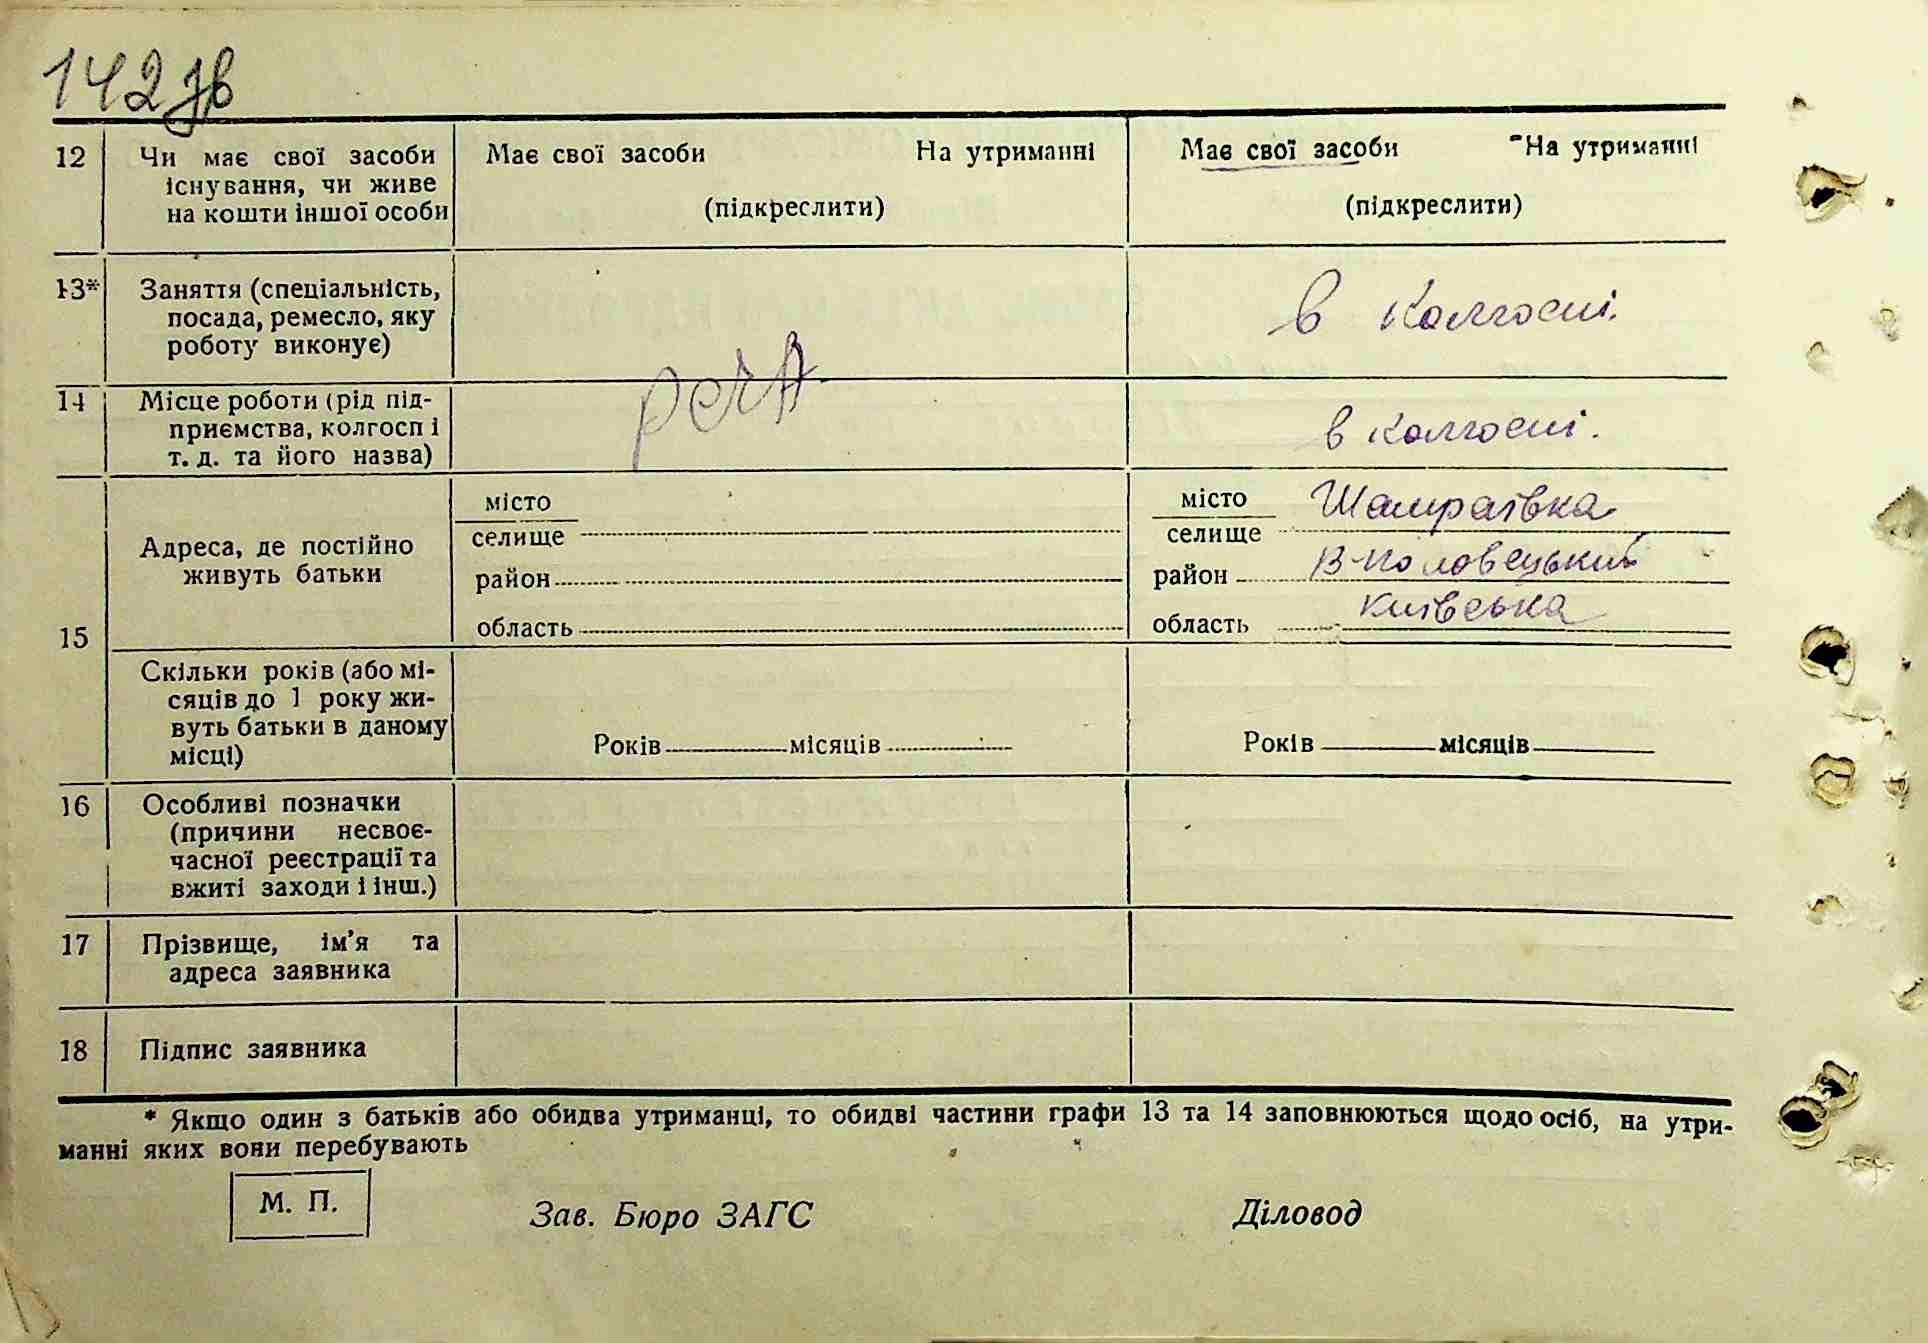 142 зв
12 Чи має свої засоби існування, чи живе на кошти іншої особи
Має свої засоби На утриманні
(підкреслити)
Має свої засоби На утриманні
(підкреслити)
13* Заняття (спеціальність,
посада, ремесло, яку
роботу виконує)
в колгоспі.
14 Місце роботи (рід під-
приємства, колгосп і
т. д. та його назва)
в колгоспі.
15
Адреса, де постійно
живуть батьки
місто
селище
район
область
місто Шамраївка
селище
район В-Половецький
область Київська
Скільки років (або мі-
сяців до 1 року жи-
вуть батьки в даному
місці)
Років місяців
Років місяців
16 Особливі позначки
(причини несвоє-
часної реєстрації та
вжиті заходи і інш.)
17 Прізвище, ім'я та
адреса заявника
18 Підпис заявника
* Якщо один з батьків або обидва утриманці, то обидві частини графи 13 та 14 заповнюються щодо осіб, на утри-
манні яких вони перебувають
М. П.
Зав. Бюро ЗАГС Діловод